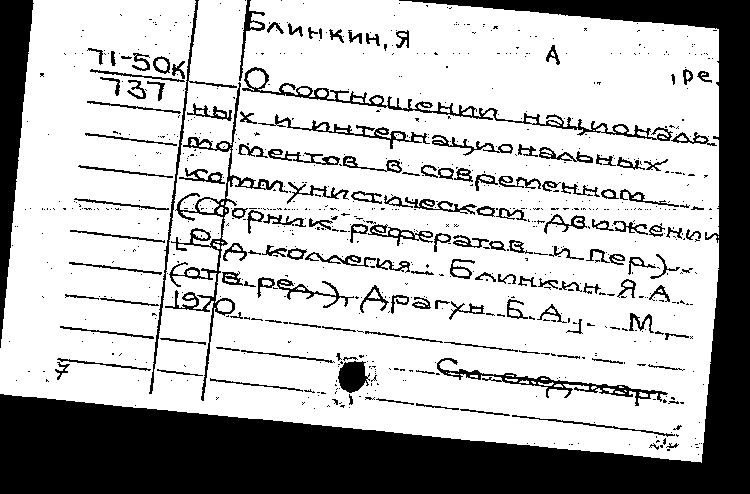 Блинкин, Я
А
, ре.
71-50к
737
О соотношении националь-
ных и интернациональных
моментов в современном
коммунистическом движении
(Сборник рефератов и пер.)
Ред. коллегия: Блинкин Я.А.
(отв. ред.), Драгун Б.А., М.,
1970.
См. след. карт.
7